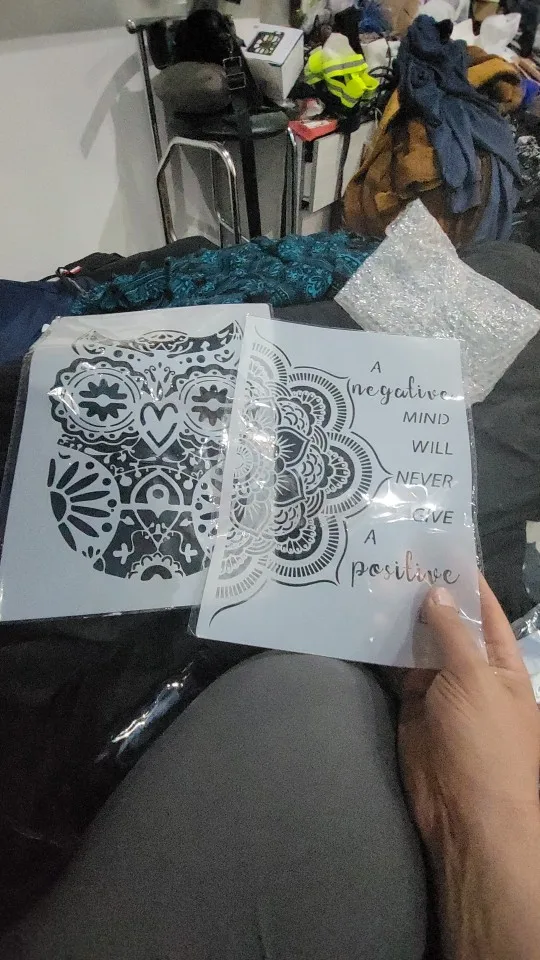 A
negative
MIND
WILL
NEVER
GIVE
A
positive